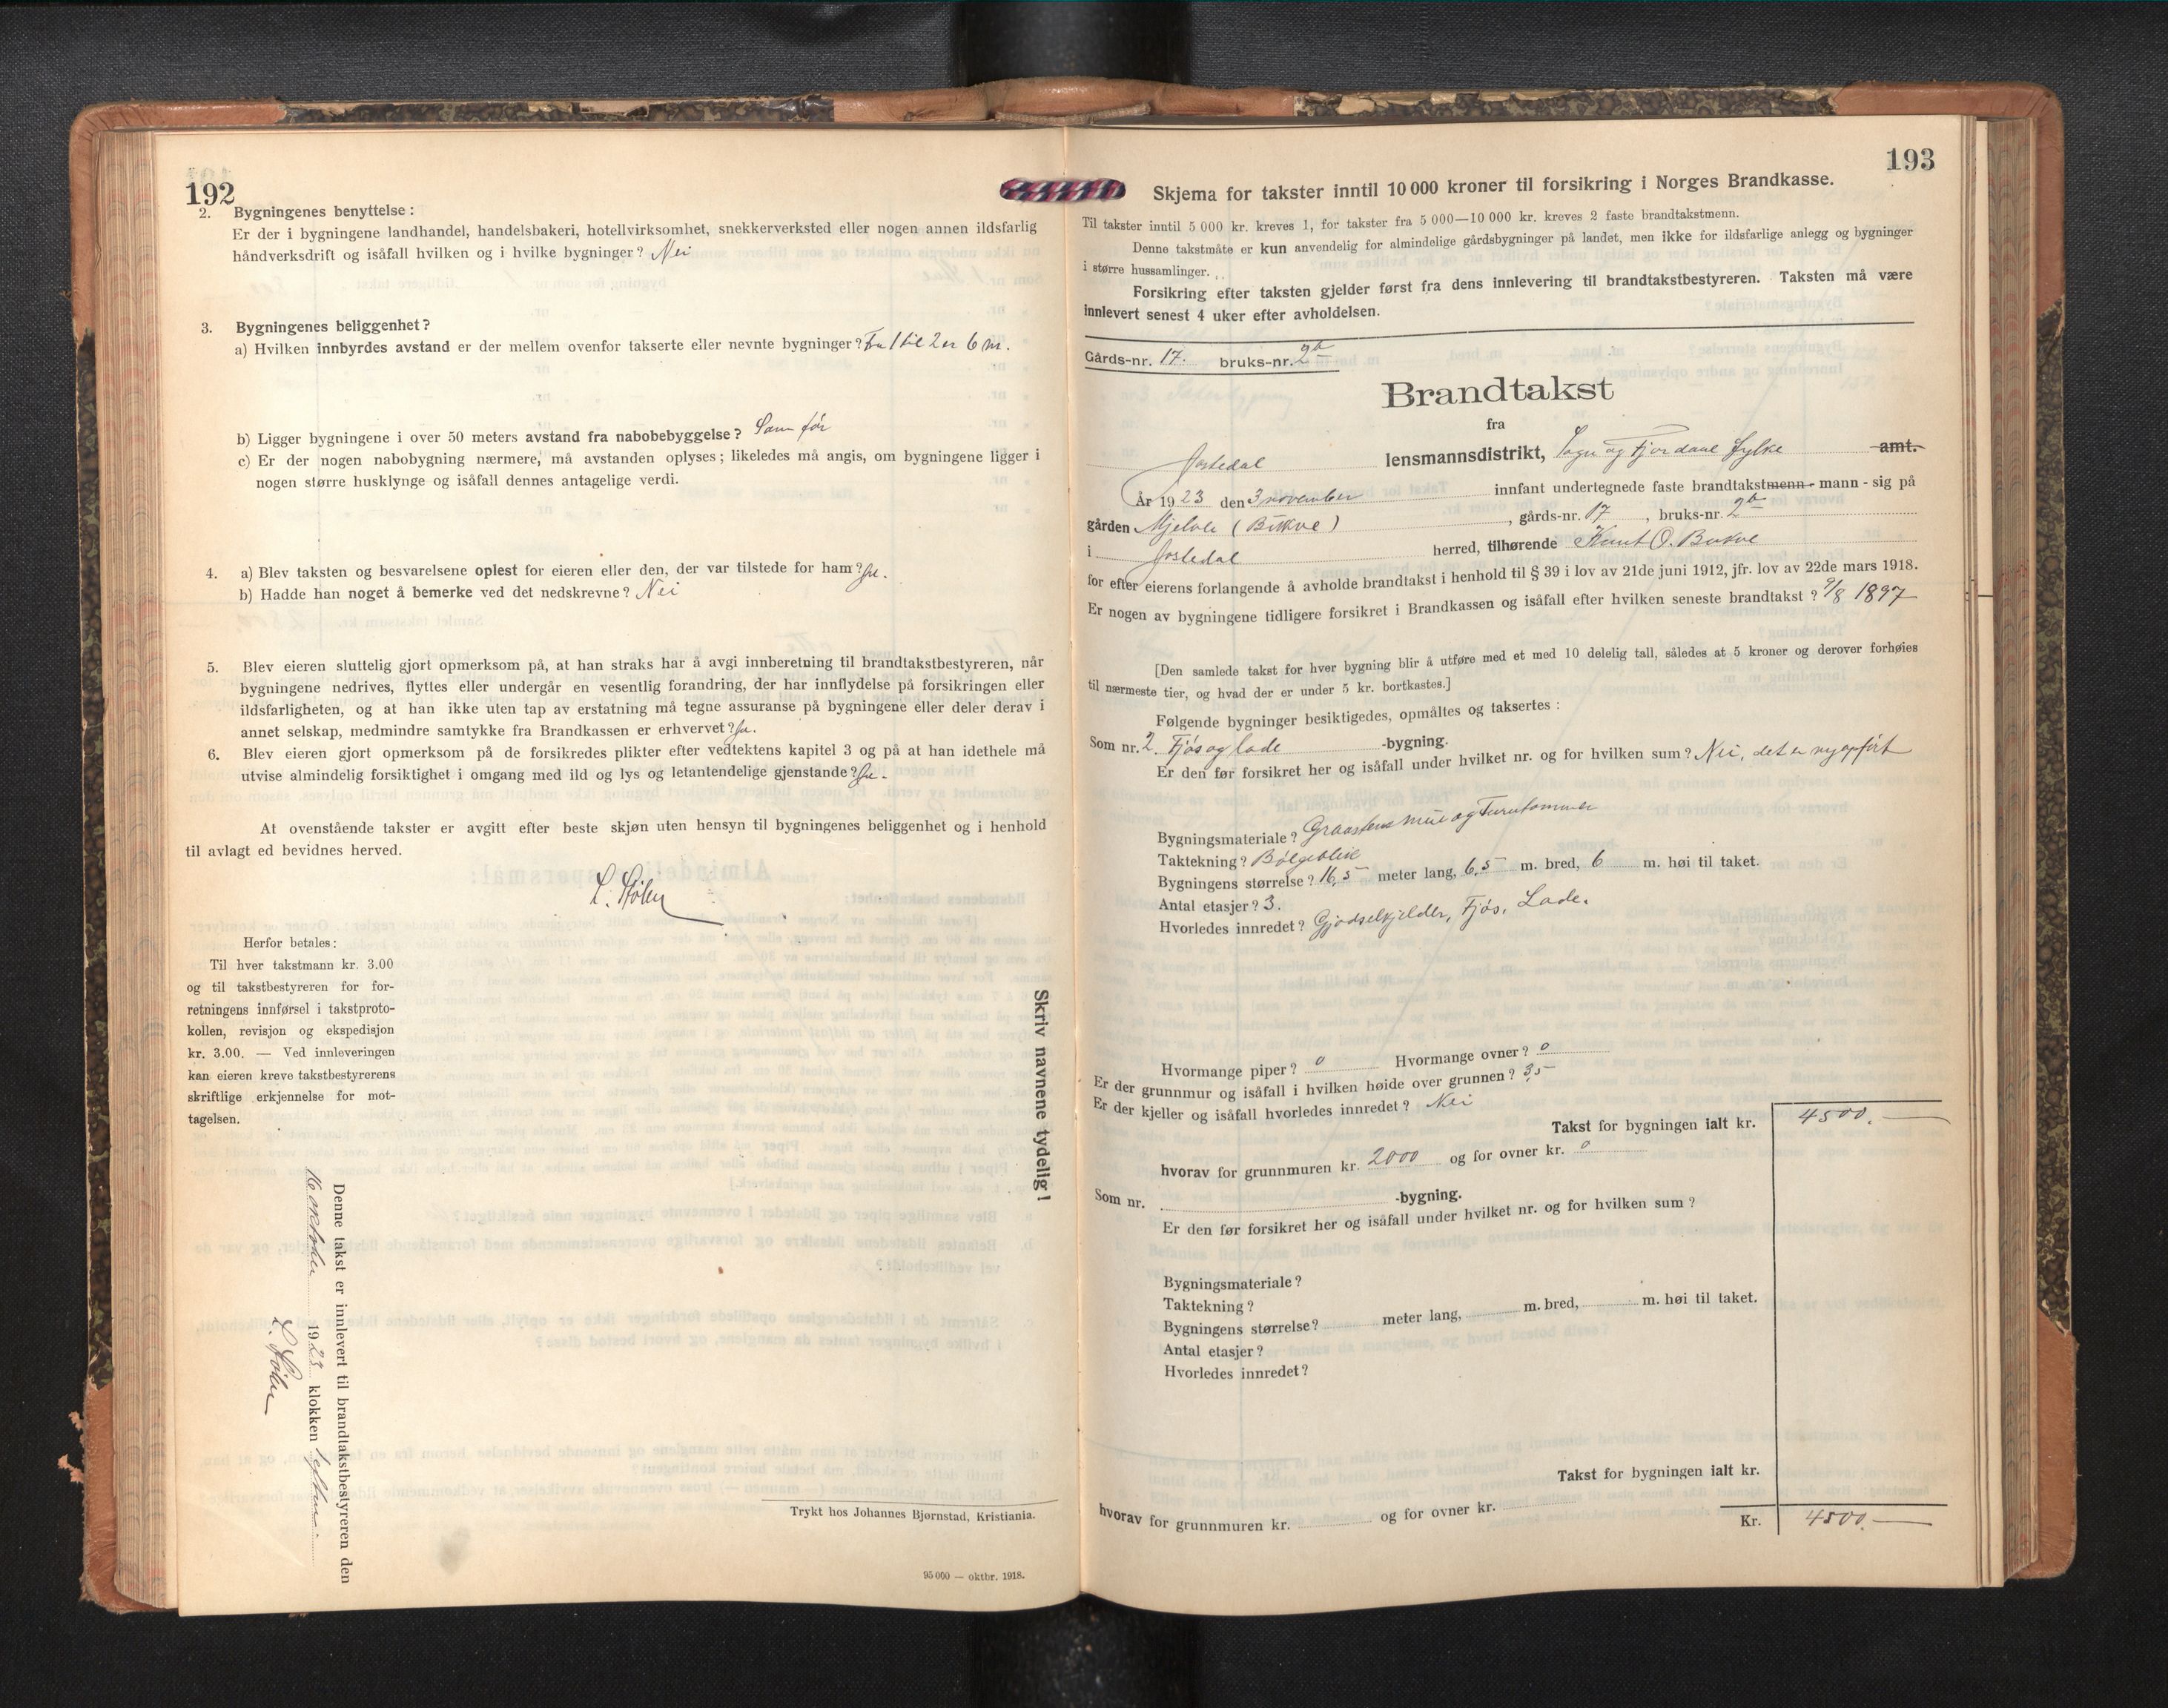 192
2. Bygningenes benyttelse:
Er der i bygningene landhandel, handelsbakeri, hotellvirksomhet, snekkerverksted eller nogen annen ildsfarlig
håndverksdrift og isåfall hvilken og i hvilke bygninger? Nei
3. Bygningenes beliggenhet?
a) Hvilken innbyrdes avstand er der mellem ovenfor takserte eller nevnte bygninger? Fra 1 til 2 er 6 m.
b) Ligger bygningene i over 50 meters avstand fra nabobebyggelse? Som før
c) Er der nogen nabobygning nærmere, må avstanden oplyses; likeledes må angis, om bygningene ligger i
nogen større husklynge og isåfall dennes antagelige verdi.
4. a) Blev taksten og besvarelsene oplest for eieren eller den, der var tilstede for ham? Ja.
b) Hadde han noget å bemerke ved det nedskrevne? Nei
5. Blev eieren sluttelig gjort opmerksom på, at han straks har å avgi innberetning til brandtakstbestyreren, når
bygningene nedrives, flyttes eller undergår en vesentlig forandring, der har innflydelse på forsikringen eller
ildsfarligheten, og at han ikke uten tap av erstatning må tegne assuranse på bygningene eller deler derav i
annet selskap, medmindre samtykke fra Brandkassen er erhvervet? Ja.
6. Blev eieren gjort opmerksom på de forsikredes plikter efter vedtektens kapitel 3 og på at han idethele må
utvise almindelig forsiktighet i omgang med ild og lys og letantendelige gjenstande? Ja.
At ovenstående takster er avgitt efter beste skjøn uten hensyn til bygningenes beliggenhet og i henhold
til avlagt ed bevidnes herved.
L. Stølen
Herfor betales:
Til hver takstmann kr. 3.00
og til takstbestyreren for for-
retningens innførsel i takstproto-
kollen, revisjon og ekspedisjon
kr. 3.00. — Ved innleveringen
kan eieren kreve takstbestyrerens
skriftlige erkjennelse for mot-
tagelsen.
Skriv navnene tydelig!
Denne takst er innlevert til brandtakstbestyreren den
16 oktober 1923 klokken
L. Stølen
Trykt hos Johannes Bjørnstad, Kristiania.
95 000 — oktbr. 1918.
193
Skjema for takster inntil 10 000 kroner til forsikring i Norges Brandkasse.
Til takster inntil 5 000 kr. kreves 1, for takster fra 5 000—10 000 kr. kreves 2 faste brandtakstmenn.
Denne takstmåte er kun anvendelig for almindelige gårdsbygninger på landet, men ikke for ildsfarlige anlegg og bygninger
i større hussamlinger.
Forsikring efter taksten gjelder først fra dens innlevering til brandtakstbestyreren. Taksten må være
innlevert senest 4 uker efter avholdelsen.
Gårds-nr. 17. bruks-nr. 2b
Brandtakst
fra
Jostedal lensmannsdistrikt, Sogn og Fjordane fylke amt.
År 1923 den 3 november innfant undertegnede faste brandtakstmenn - mann - sig på
gården Mjelve (Bukve), gårds-nr. 17, bruks-nr. 2b
i Jostedal herred, tilhørende Knut O. Bukve
for efter eierens forlangende å avholde brandtakst i henhold til § 39 i lov av 21de juni 1912, jfr. lov av 22de mars 1918.
Er nogen av bygningene tidligere forsikret i Brandkassen og isåfall efter hvilken seneste brandtakst? 9/8 1897
[Den samlede takst for hver bygning blir å utføre med et med 10 delelig tall, således at 5 kroner og derover forhøies
til nærmeste tier, og hvad der er under 5 kr. bortkastes.]
Følgende bygninger besiktigedes, opmåltes og taksertes:
Som nr. 2. Fjøs og lade -bygning.
Er den før forsikret her og isåfall under hvilket nr. og for hvilken sum? Nei, det er nyopført
Bygningsmateriale? Graastens mur og Furutømmer
Taktekning? Bølgeblik
Bygningens størrelse? 16,5 meter lang, 6,5 m. bred, 6 m. høi til taket.
Antal etasjer? 3.
Hvorledes innredet? Gjødselkjelder, Fjøs, Lade.
Hvormange piper? 0 Hvormange ovner? 0
Er der grunnmur og isåfall i hvilken høide over grunnen? 3,5
Er der kjeller og isåfall hvorledes innredet? Nei
Takst for bygningen ialt kr. 4500.—
hvorav for grunnmuren kr. 2000 og for ovner kr. 0
Som nr. -bygning.
Er den før forsikret her og isåfall under hvilket nr. og for hvilken sum?
Bygningsmateriale?
Taktekning?
Bygningens størrelse? meter lang, m. bred, m. høi til taket.
Antal etasjer?
Hvorledes innredet?
Takst for bygningen ialt kr.
hvorav for grunnmuren kr. og for ovner kr.
Kr. 4500.—